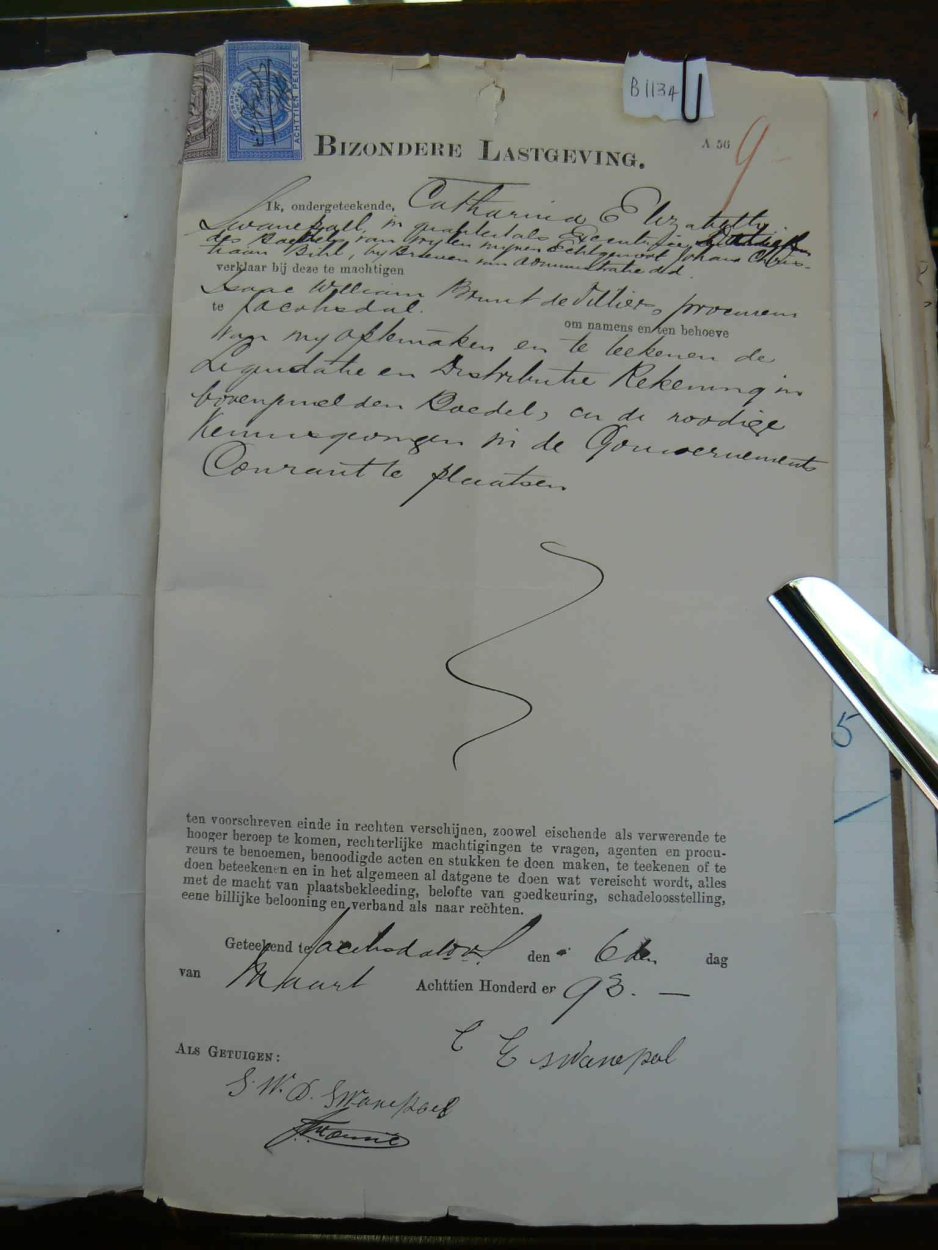 B1134
ACHTTIEN PENCE
BIZONDERE LASTGEVING.
A 56
9
Ik, ondergeteekende, Catharina Elizabeth
Swanepoel, in qualiteit als Executrice
des Boedels van wylen mynen Echtgenoot Johans Chris-
tiaan Buhl, by Brieven van administratie dd.
verklaar bij deze te machtigen
Isaac William Brunt de Villiers, procureur
te Jacobsdal.
om namens en ten behoeve
van my op te maken en te teekenen de
Liquidatie en Distributie Rekening in
bovengemelden Boedel, en de noodige
Kennisgevingen in de Gouvernements
Courant te plaatsen
ten voorschreven einde in rechten verschijnen, zoowel eischende als verwerende te
hooger beroep te komen, rechterlijke machtigingen te vragen, agenten en procu-
reurs te benoemen, benoodigde acten en stukken te doen maken, te teekenen of te
doen beteekenen en in het algemeen al datgene te doen wat vereischt wordt, alles
met de macht van plaatsbekleeding, belofte van goedkeuring, schadeloosstelling,
eene billijke belooning en verband als naar rechten.
Geteekend te Jacobsdal den 6den dag
van Maart Achttien Honderd en 93. —
C E swanepol
ALS GETUIGEN:
S. W. D. Swanepoel
5